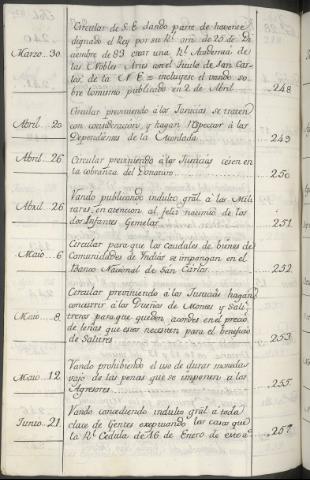 Circular de S. E. dando parte de haverse
dignado el Rey por su Rl. orn. de 25 de Di
Marzo.. 30. ciembre de 83 crear una Rl. Academia de
las Nobles Artes con el titulo de San Car
los de la N. E. = incluyese el vando so
bre lo mismo publicado en 2 de Abril 248
Circular previniendo á las Justicias se traten
Abril.. 20 con consideracion, y hagan respectar á los
Dependientes de la Acordada 249
Abril.. 26 Circular previniendo á las Justicias cesen en
la cobranza del Donativo 250
Vando publicando indulto gral á los Mili
Abril.. 26 tares, en atencion al feliz nacimto. de los
dos Infantes Gemelos 251
Circular para que los Caudales de bienes de
Maio.. 6 Comunidades de Yndios se impongan en el
Banco Nacional de San Carlos 252
Circular previniendo á las Justicias hagan
concurrir á los Dueños de Montes y Sali
Maio.. 8. treros para que queden acordes en el precio
de leñas que estos necesiten para el beneficio
de Salitres 253
Vando prohibiendo el uso de
Maio.. 12. vajo de las penas que se imponen a los
Agresores 255
Vando concediendo indulto gral á toda
Junio.. 21 clase de Gentes exeptuando los casos que
la Rl. Cedula de 16 de Enero de este a. 257